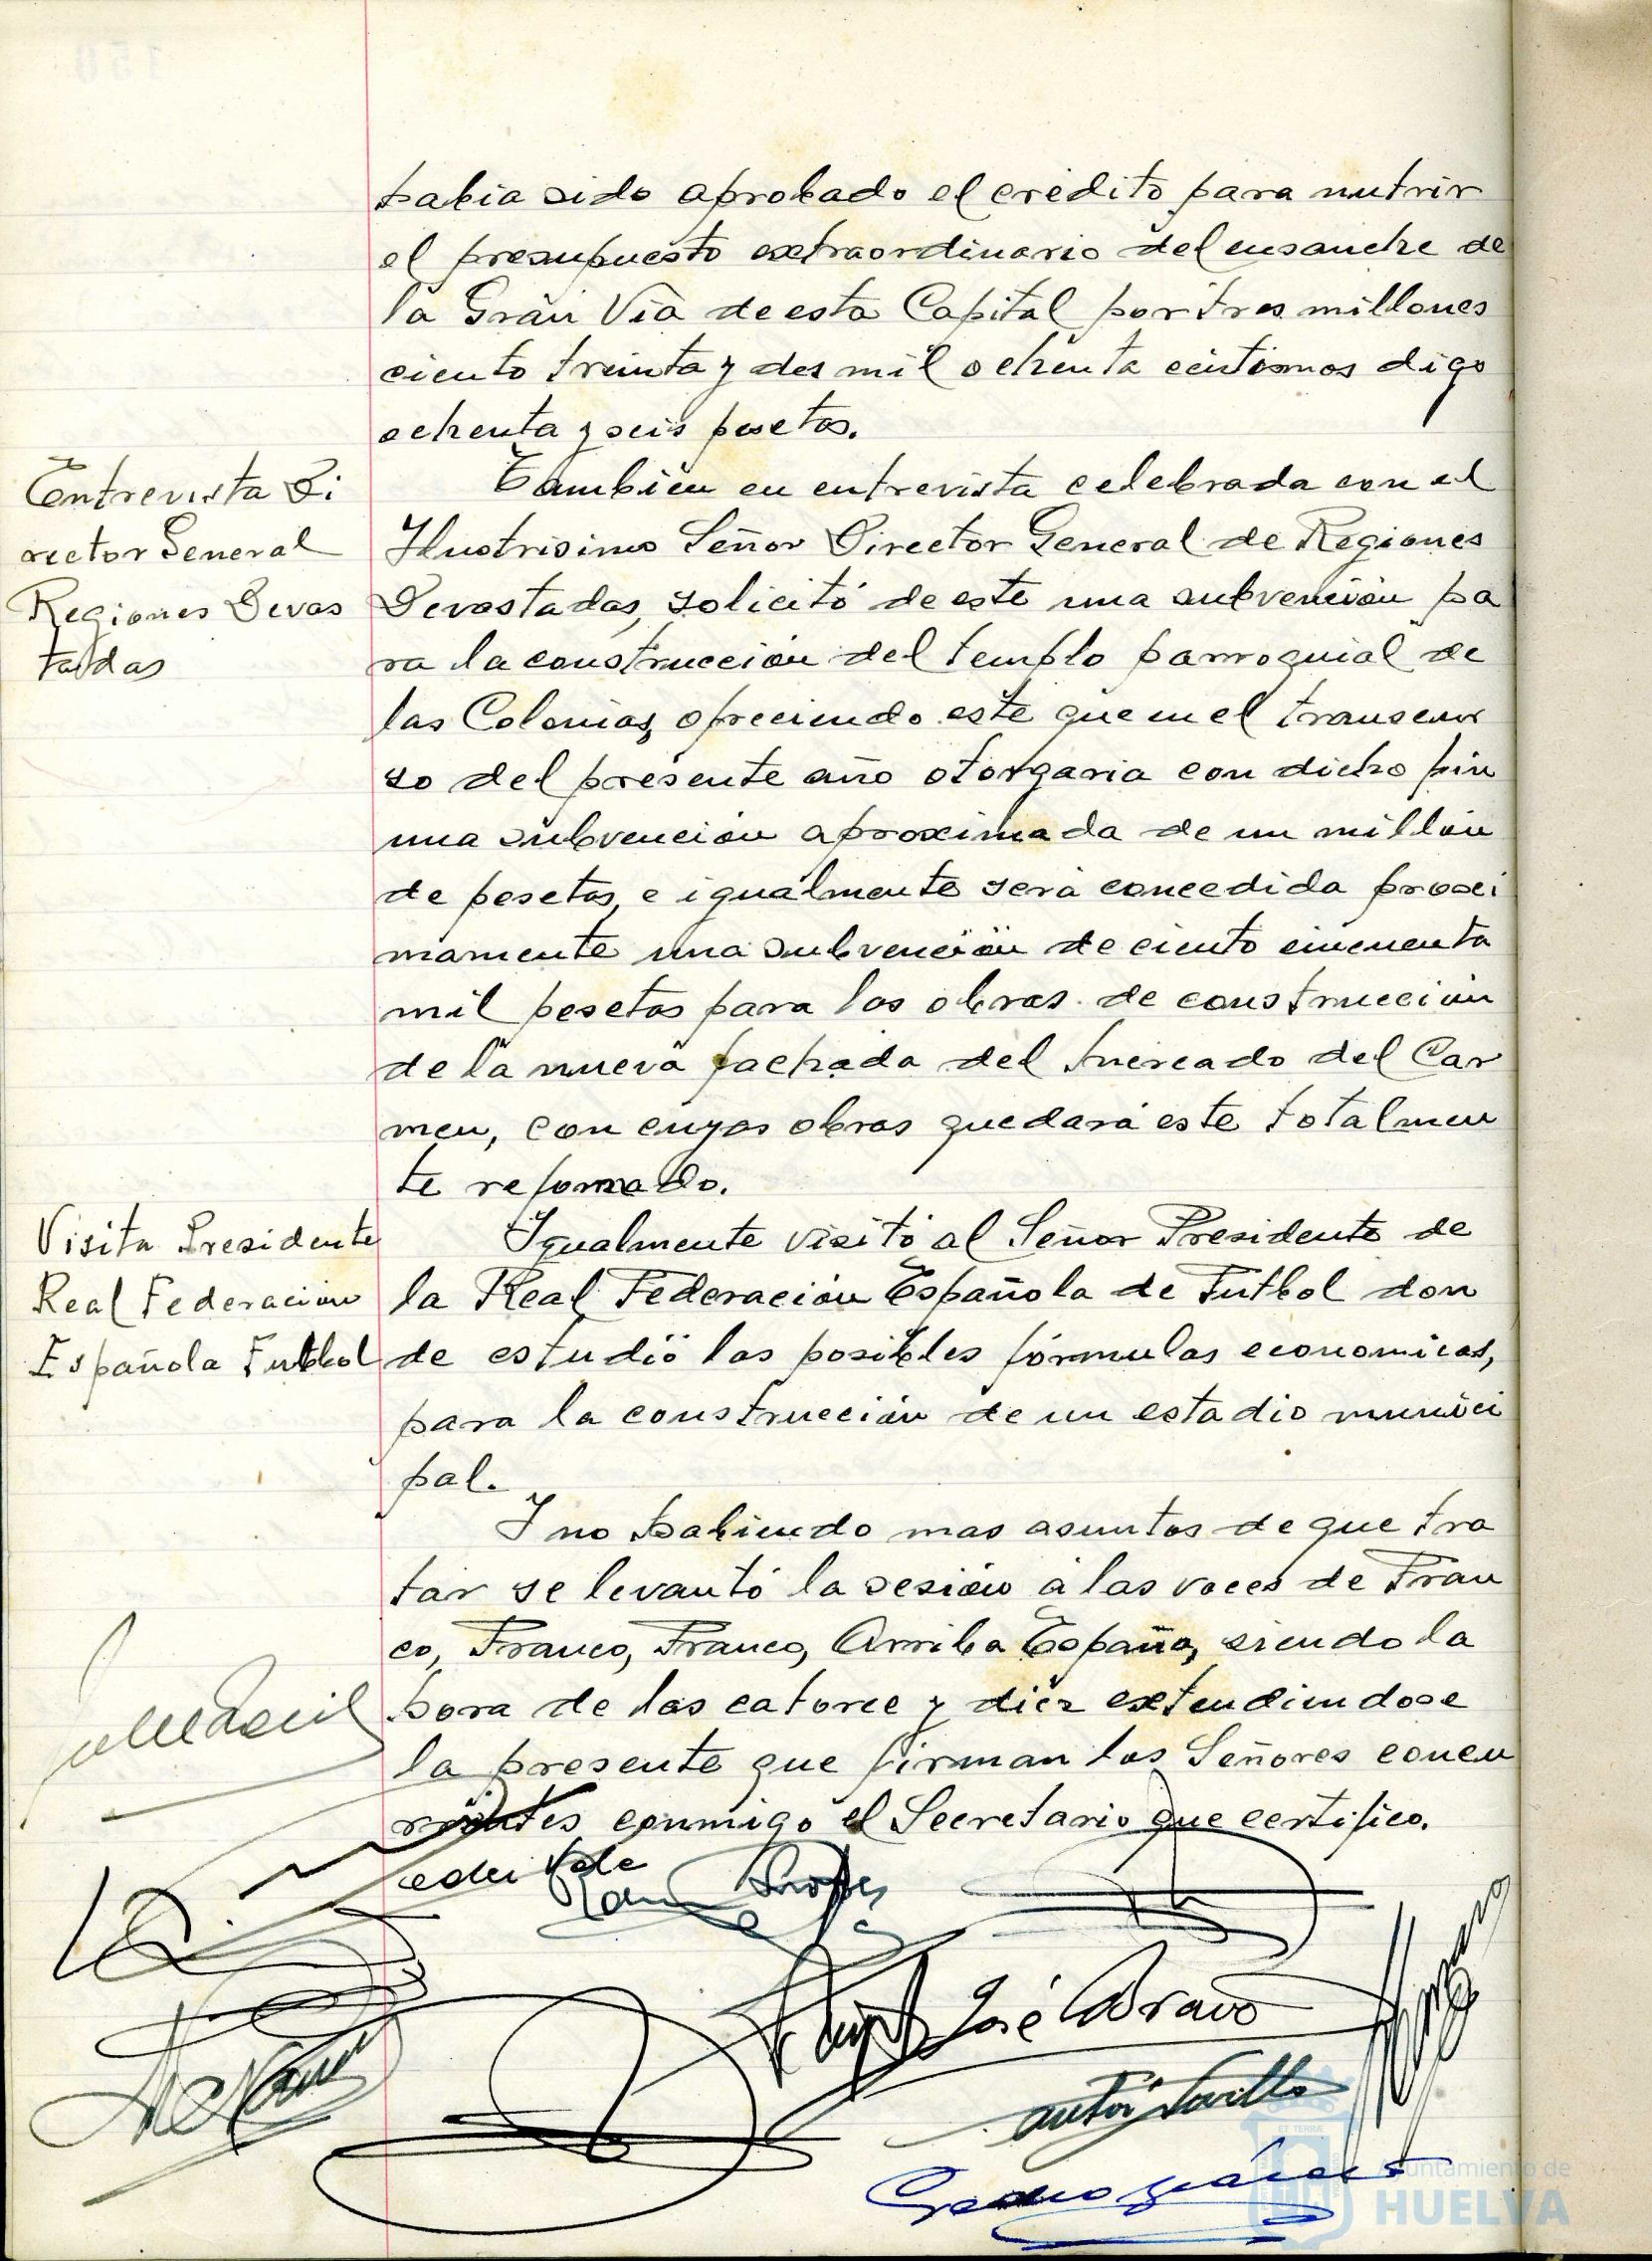 habia sido aprobado el crédito para nutrir
el presupuesto extraordinario del ensanche de
la Gran Via de esta Capital por tres millones
ciento treinta y dos mil ochenta céntimos digo
ochenta y seis pesetas.
Entrevista Di
rector General
Regiones Devas
tadas
Tambien en entrevista celebrada con el
Ilustrisimo Señor Director General de Regiones
Devastadas, solicitó de este una subvención pa
ra la construcción del templo parroquial de
las Colonias, ofreciendo este que en el transcur
so del presente año otorgaria con dicho fin
una subvención aproximada de un millón
de pesetas, e igualmente será concedida proxi
mamente una subvención de ciento cincuenta
mil pesetas para las obras de construcción
de la nueva fachada del Mercado del Car
men, con cuyas obras quedará este totalmen
te reformado.
Visita Presidente
Real Federación
Española Futbol
Igualmente visitó al Señor Presidente de
la Real Federación Española de Futbol don
de estudió las posibles fórmulas economicas,
para la construcción de un estadio munici
pal.
Y no habiendo mas asuntos de que tra
tar se levantó la sesión a las voces de Fran
co, Franco, Franco, Arriba España, siendo la
hora de las catorce y diez extendiendose
la presente que firman los Señores concu
rrentes conmigo el Secretario que certifico.
vale
José Bravo
Ayuntamiento de
HUELVA